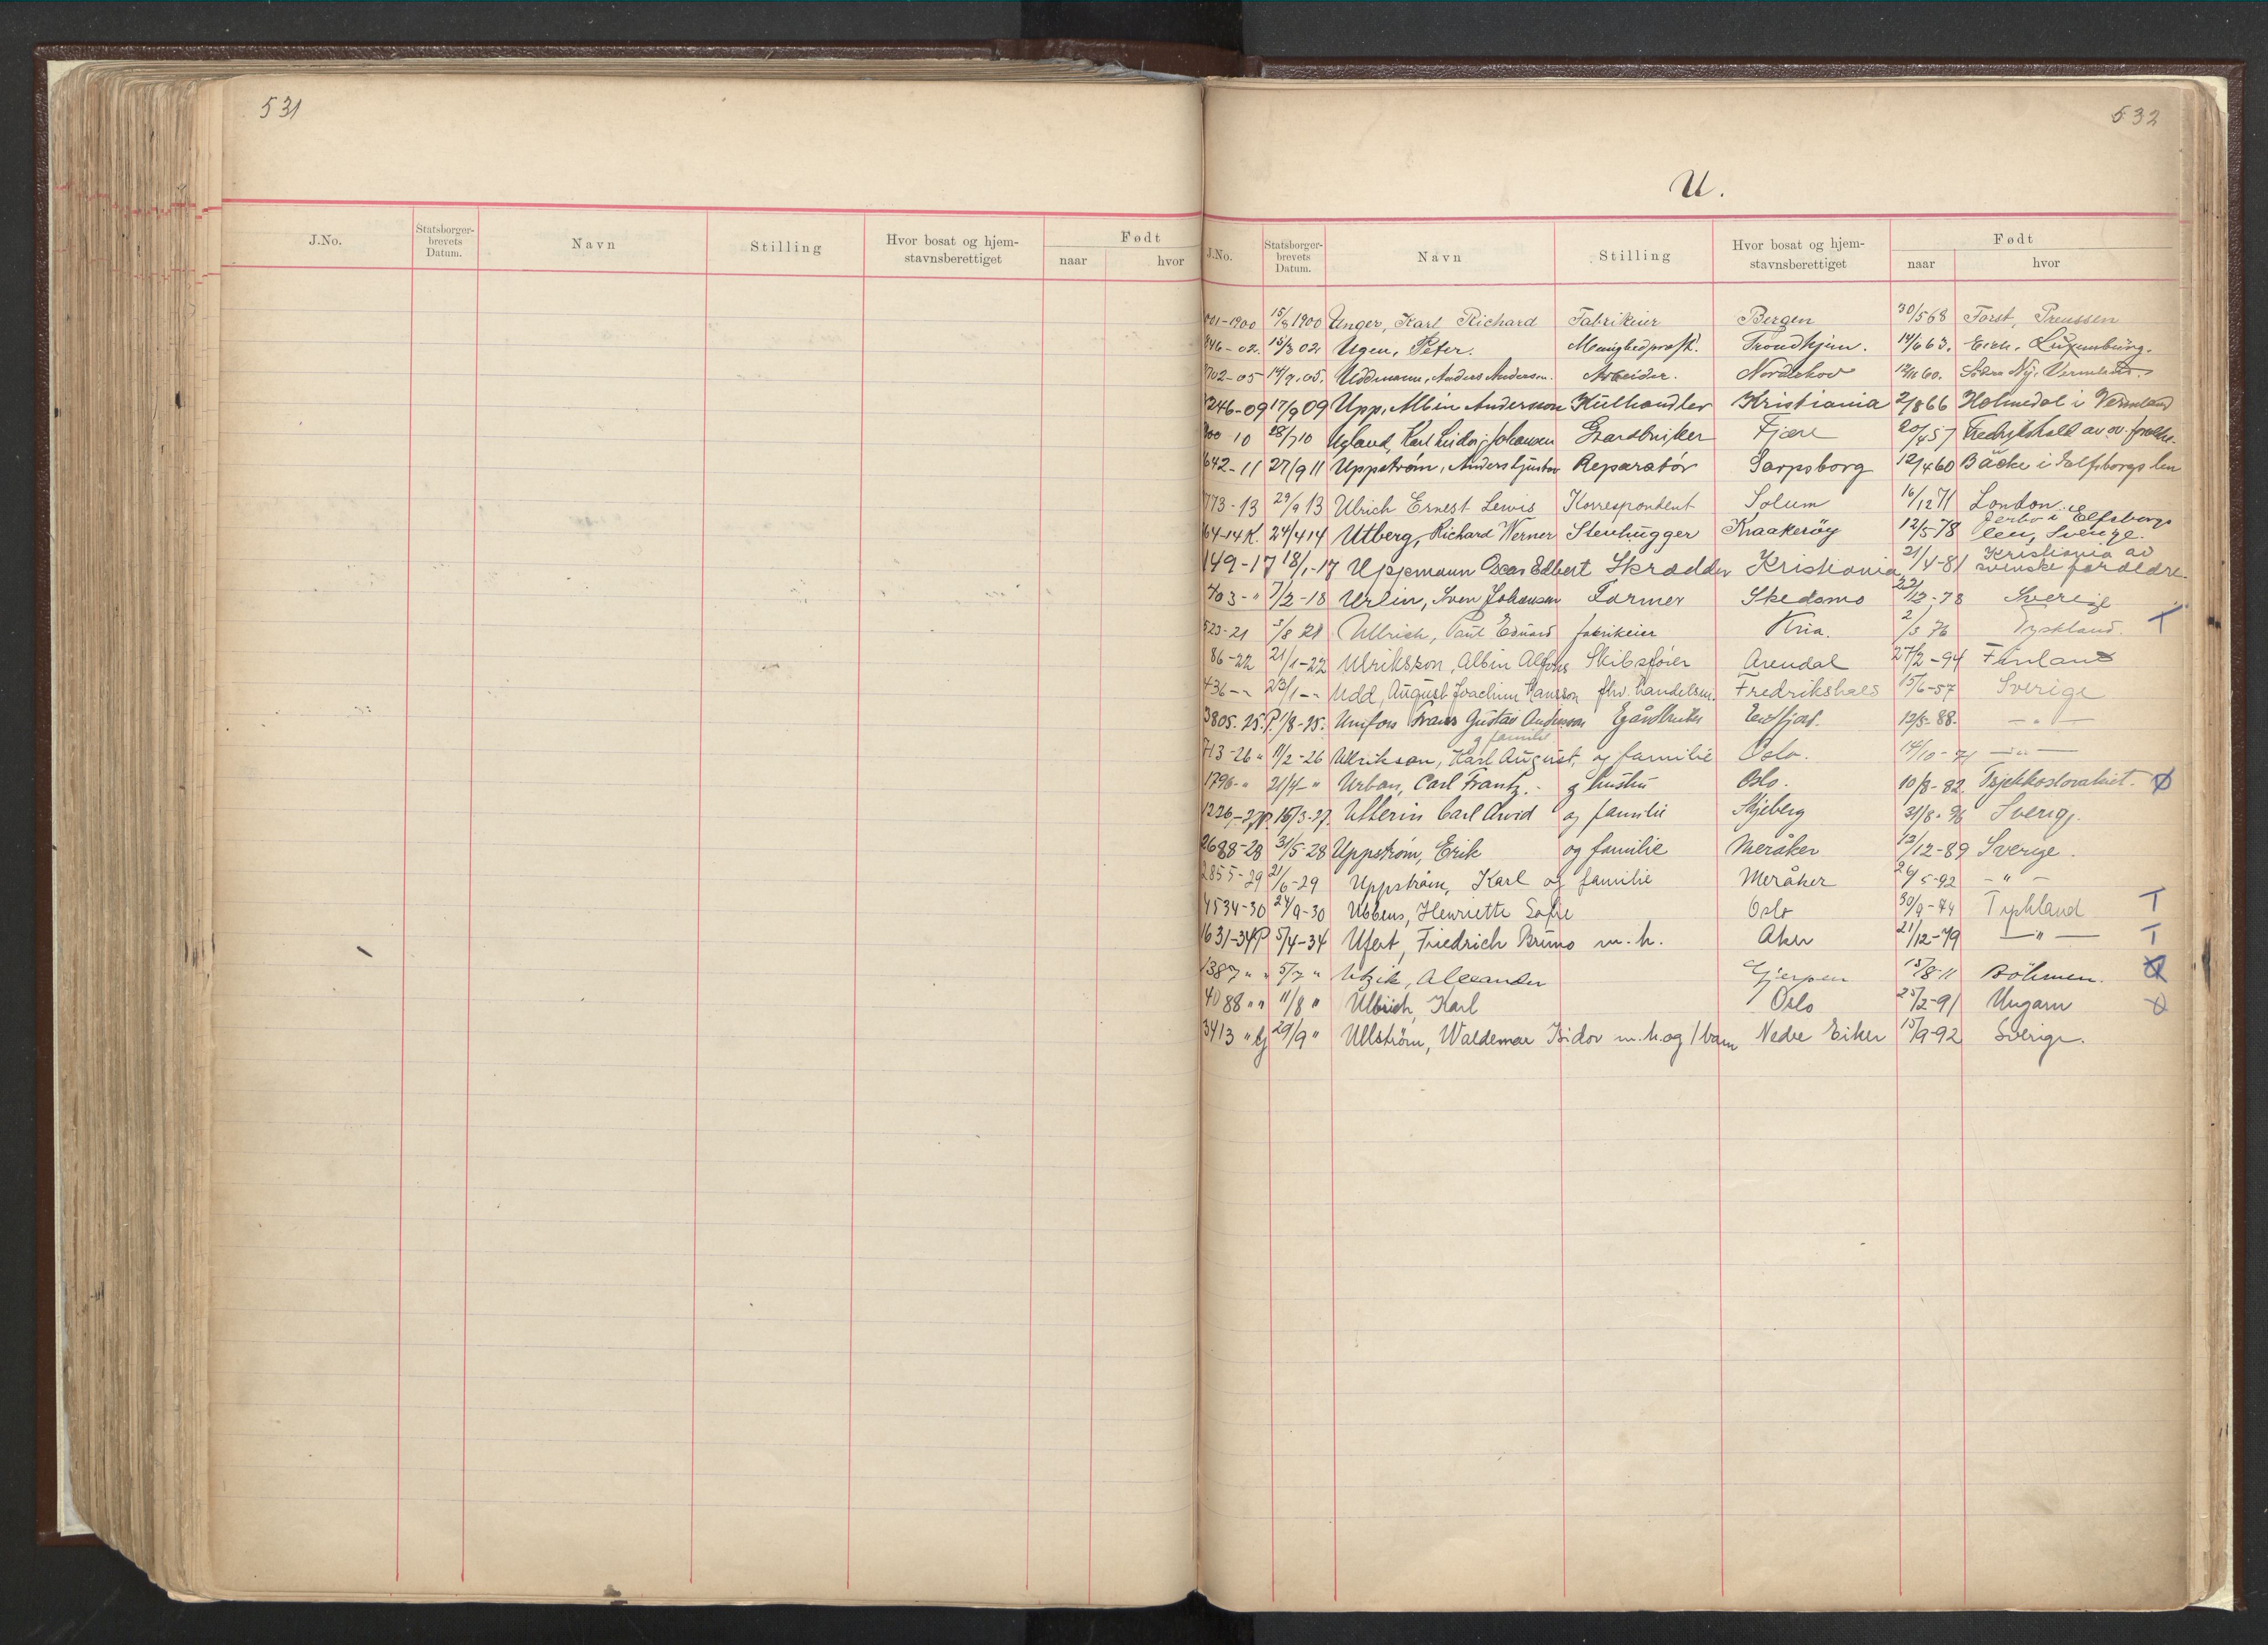 531
J.No.
Statsborger-
brevets
Datum.
Navn
Stilling
Hvor bosat og hjem-
stavnsberettiget
Født
naar
hvor
532
U.
J.No.
Statsborger-
brevets
Datum.
Navn
Stilling
Hvor bosat og hjem-
stavnsberettiget
Født
naar
hvor
01-1900 15/3 1900 Unger, Karl Richard Fabrikeier Bergen 30/5 68 Forst, Preussen
46-02. 15/3 02 Ugen, Peter. Trondhjem. 14/6 63. Luxemburg.
702-05 14/9.05. Uddmann, Anders Anderson. Arbeider. Norderhov 12/11 60. Ny, Vermland.
246-09 17/9 09 Upp, Albin Andersson Kulhandler Kristiania 2/8 66 Holmedal i Vermland
00 10 28/7 10 Ugland, Karl Johansen Gaardbruker Fjære 20/4 57 Fredrikshald av sv. forældre.
642-11 27/9 11 Uppstrøm, Anders Reparatør Sarpsborg 12/4 60 Bäcke i Elfsborgs len
773-13 29/9 13 Ulrich Ernest Lewis Korrespondent Solum 16/12 71 London.
64-14 K. 24/4 14 Utberg, Richard Werner Stenhugger Kraakerøy 12/5 78 i Elfsborgs
len, Sverige.
149-17 18/1-17 Uppmann Oscar Edbert Skrædder Kristiania 21/4-81 Kristiania av
svenske forældre.
403-" 7/2-18 Urlin, Sven Johansen Former Skedsmo 22/12-78 Sverige
523-21 5/8 21 Ullrich, Paul Eduard fabrikeier Kria. 2/3 76 Tyskland. T
86-22 21/1-22 Ulriksson, Albin Alfons Skibsfører Arendal 27/2-94 Finland
436-" 23/1-" Udd, August Joachim Hansson fhv. handelsm. Fredrikshald 15/6-57 Sverige
3805.25.P. 1/8-25. Unifors Frans Gustav Anderson Gårdbruker 12/5-88. -"-
og familie
713-26 " 11/2-26 Ullrikson, Karl August, og familie Oslo. 14/10-71 -"-
1796-" 21/4-" Urban, Carl Frantz. og hustru Oslo. 10/8-82. Tsjekkoslovakiet.
1226-27P. 15/3-27. Utterin Carl Arvid og familie Skjeberg 31/8-96 Sverige.
2688-28 31/5-28 Uppstrøm, Erik og familie Meråker 13/12-89 Sverige.
2855-29 21/6-29 Uppstrøm, Karl og familie Meråker 26/5-92 -"-
4534-30 24/9-30 Ubbens, Henriette Sofie Oslo 30/9-74 Tyskland T
1631-34P 5/4-34 Ufert, Friedrich Bruno m. h. Aker 21/12-79 -"- T
1387 " " 5/7 " Utzik, Alexander Gjerpen 15/8-11 Böhmen.
4088 " " 11/8 " Ulbrich, Karl Oslo 25/2-91 Ungarn
3413 " G 29/9 " Ullström, Waldemar Isidor m. h. og 1 barn Nedre Eiker 15/9-92 Sverige.